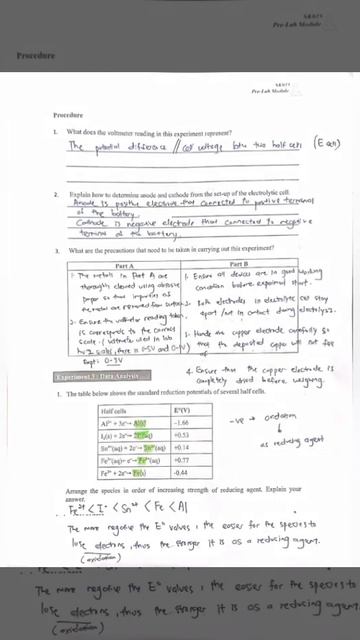 SK025
Pre-Lab Module
Procedure
SK025
Pre-Lab Module
Procedure
1. What does the voltmeter reading in this experiment represent?
The potential difference // cell voltage btw two half cell (E cell)
2. Explain how to determine anode and cathode from the set-up of the electrolytic cell.
Anode is positive electrode that connected to positive terminal
of the battery.
Cathode is negative electrode that connected to negative
terminal of the battery.
3. What are the precautions that need to be taken in carrying out this experiment?
Part A
Part B
1. The metals in Part A are
thoroughly cleaned using abrasive
paper so that impurities of
the metal are removed from surface.
2. Ensure the voltmeter reading taken
is corresponds to the correct
scale. (voltmeter used in lab
has 2 scales, there is 0-5V and 0-1V)
Expt: 0-3V
1. Ensure all devices are in good working
condition before experiment start.
2. Both electrodes in electrolytic cell stay
apart / not in contact during electrolysis.
3. Handle the copper electrode carefully so
that the deposited copper will not fall
off
4. Ensure that the copper electrode is
completely dried before weighing.
Experiment 5: Data Analysis
1. The table below shows the standard reduction potentials of several half cells.
Half cells E°(V)
Al³⁺ + 3e⁻→ Al(s) -1.66
I₂(s) + 2e⁻→ 2I⁻(aq) +0.53
Sn⁴⁺(aq) + 2e⁻→ Sn²⁺(aq) +0.14
Fe³⁺(aq)+ e⁻→ Fe²⁺(aq) +0.77
Fe²⁺ + 2e⁻→ Fe(s) -0.44
-ve →
as reducing agent
Arrange the species in order of increasing strength of reducing agent. Explain your
answer.
Fe²⁺ < I⁻ < Sn²⁺ < Fe < Al
The more negative the E° values, the easier for the species to
lose electrons, thus the stronger it is as a reducing agent.
(oxidation)
The more negative the E° values, the easier for the species to
lose electrons, thus the stronger it is as a reducing agent.
(oxidation)